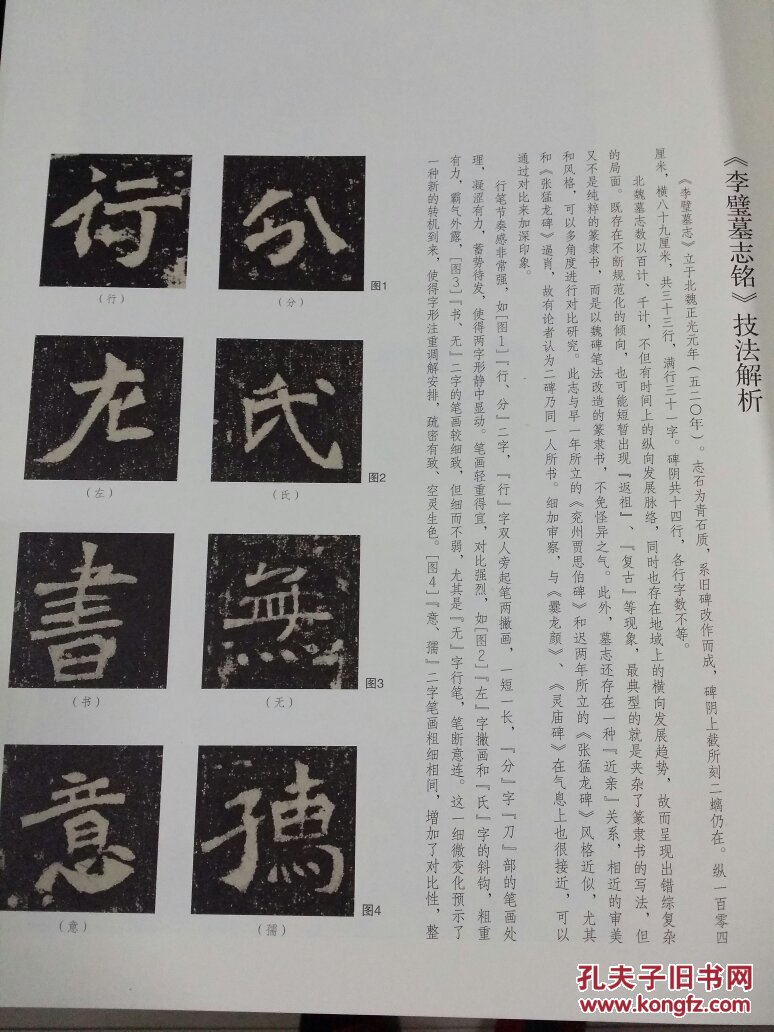 《李璧墓志铭》技法解析
《李璧墓志》立于北魏正光元年（五二〇年）。志石为青石质，系旧碑改作而成，碑阴上截所刻二螭仍在。纵一百零四
厘米，横八十九厘米，共三十三行，满行三十一字。碑阴共十四行，各行字数不等。
北魏墓志数以百计、千计，不但有时间上的纵向发展脉络，同时也存在地域上的横向发展趋势，故而呈现出错综复杂
的局面。既存在不断规范化的倾向，也可能短暂出现『返祖』、『复古』等现象，最典型的就是夹杂了篆隶书的写法，但
又不是纯粹的篆隶书，而是以魏碑笔法改造的篆隶书，不免怪异之气。此外，墓志还存在一种『近亲』关系，相近的审美
和风格，可以多角度进行对比研究。此志与早一年所立的《兖州贾思伯碑》和迟两年所立的《张猛龙碑》风格近似，尤其
和《张猛龙碑》逼肖，故有论者认为二碑乃同一人所书。细加审察，与《爨龙颜》、《灵庙碑》在气息上也很接近，可以
通过对比来加深印象。
行笔节奏感非常强，如［图1］『行、分』二字，『行』字双人旁起笔两撇画，一短一长，『分』字『刀』部的笔画处
理，凝涩有力，蓄势待发，使得两字形静中显动。笔画轻重得宜，对比强烈，如［图2］『左』字撇画和『氏』字的斜钩，粗重
有力，霸气外露，［图3］『书、无』二字的笔画较细致，但细而不弱，尤其是『无』字行笔，笔断意连。这一细微变化预示了
一种新的转机到来，使得字形注重调解安排，疏密有致、空灵生色。［图4］『意、孺』二字笔画粗细相间，增加了对比性，整
分
行
（分）
（行）
图1
氏
左
（氏）
（左）
图2
無
書
（无）
（书）
图3
孺
意
（孺）
（意）
图4
孔夫子旧书网
www.kongfz.com